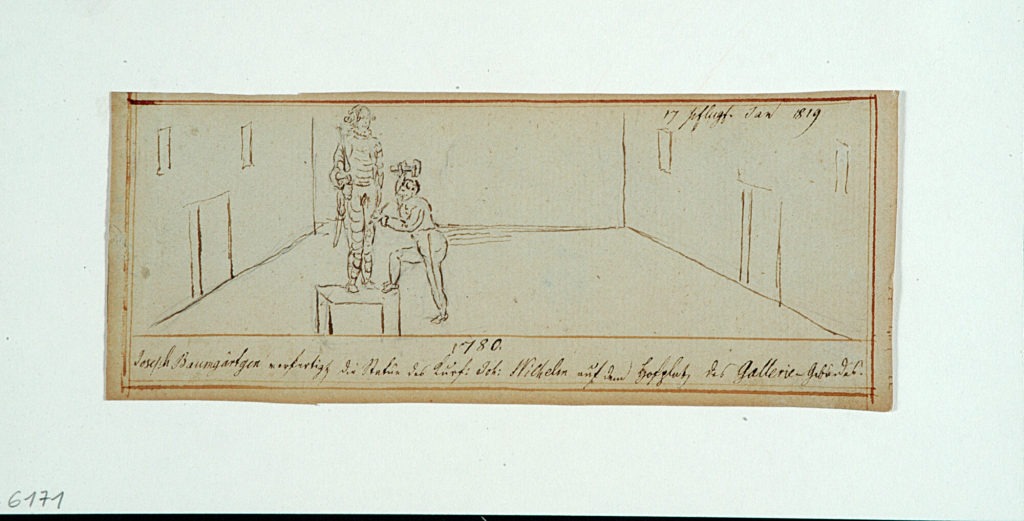 17 Jan 1819
1780.
Joseph Baumgärtgen verfertigt die Statüe des Kurf: Joh: Wilhelm auf dem Hofplatz des Gallerie-Gebäudes.
6171